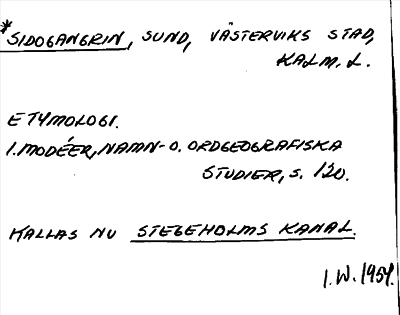 *SIDOGANGRIN, SUND, VÄSTERVIKS STAD,
KALM. L.
ETYMOLOGI.
I. MODÉER, NAMN- O. ORDGEOGRAFISKA
STUDIER, S. 120.
KALLAS NU STEGEHOLMS KANAL.
I.W. 1954.